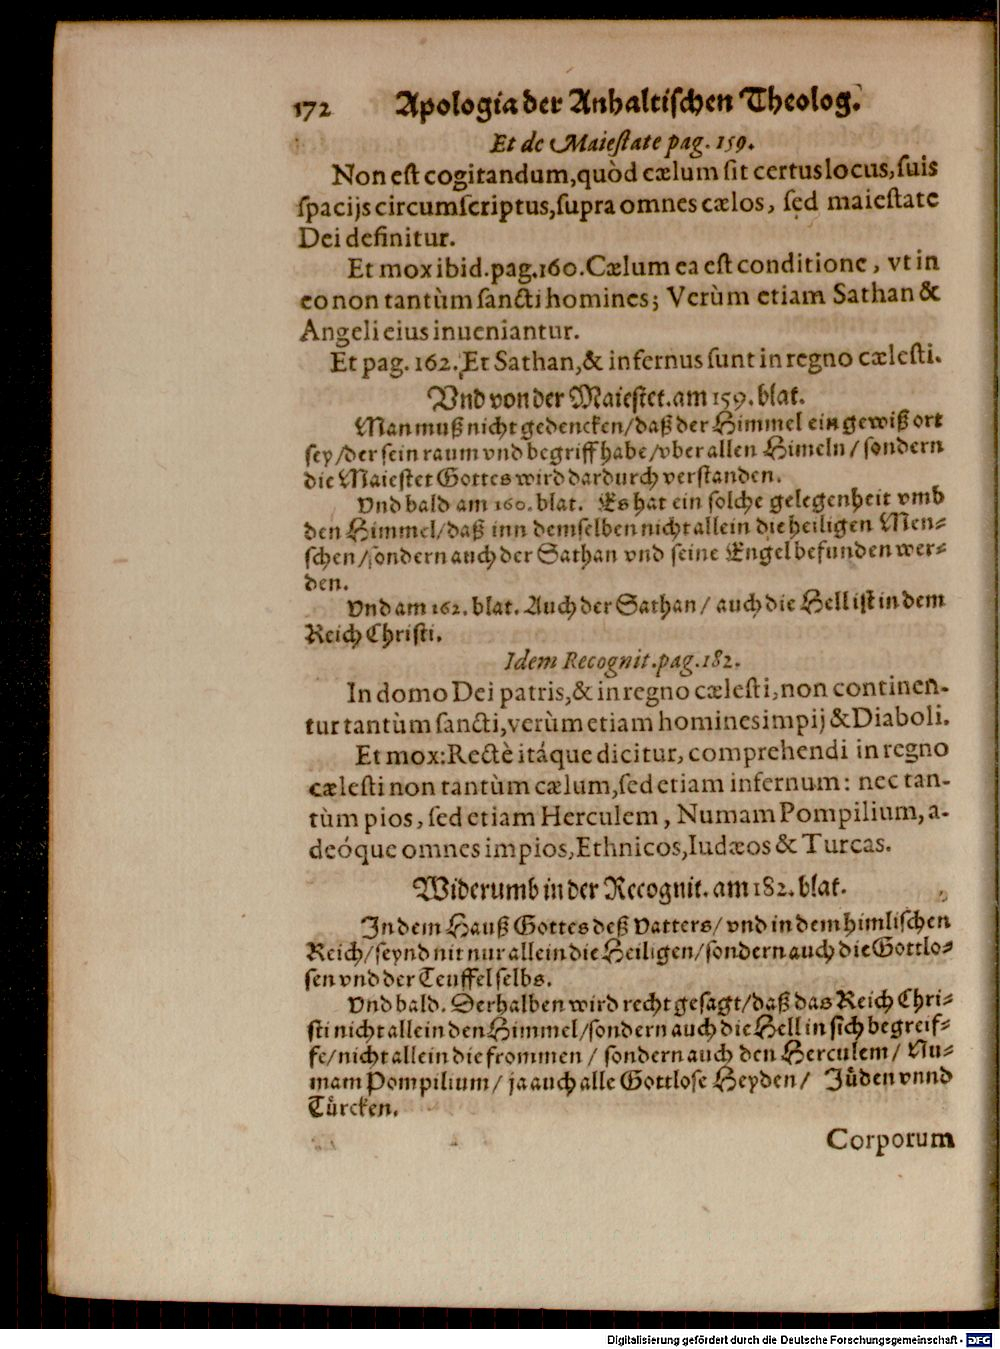 172 Apologia der Anhaltischen Theolog.
Et de Maiestate pag. 159.
Non est cogitandum, quòd cælum sit certus locus, suis
spacijs circumscriptus, supra omnes cælos, sed maiestate
Dei definitur.
Et mox ibid. pag. 160. Cælum ea est conditione, vt in
eo non tantùm sancti homines; Verùm etiam Sathan &
Angeli eius inueniantur.
Et pag. 162. Et Sathan, & infernus sunt in regno cælesti.
Vnd von der Maiestet. am 159. blat.
Man muß nicht gedencken/ daß der Himmel ein gewiß ort
sey/ der sein raum vnd begriff habe/ vber allen Himeln/ sondern
die Maiestet Gottes wird dardurch verstanden.
Vnd bald am 160. blat. Es hat ein solche gelegenheit vmb
den Himmel/ daß inn demselben nicht allein die heiligen Men-
schen/ sondern auch der Sathan vnd seine Engel befunden wer-
den.
Vnd am 162. blat. Auch der Sathan/ auch die Hell ist in dem
Reich Christi.
Idem Recognit. pag. 182.
In domo Dei patris, & in regno cælesti, non continen-
tur tantùm sancti, verùm etiam homines impij & Diaboli.
Et mox: Rectè itáque dicitur, comprehendi in regno
cælesti non tantùm cælum, sed etiam infernum: nec tan-
tùm pios, sed etiam Herculem, Numam Pompilium, a-
deóque omnes impios, Ethnicos, Iudæos & Turcas.
Widerumb in der Recognit. am 182. blat.
In dem Hauß Gottes deß Vatters/ vnd in dem himlischen
Reich/ seynd nit nur allein die Heiligen/ sondern auch die Gottlo-
sen vnd der Teuffel selbs.
Vnd bald. Derhalben wird recht gesagt/ daß das Reich Chri-
sti nicht allein den Himmel/ sondern auch die Hell in sich begreif-
fe/ nicht allein die frommen/ sondern auch den Herculem/ Nu-
mam Pompilium/ ja auch alle Gottlose Heyden/ Jůden vnnd
Tůrcken.
Corporum
Digitalisierung gefördert durch die Deutsche Forschungsgemeinschaft - DFG